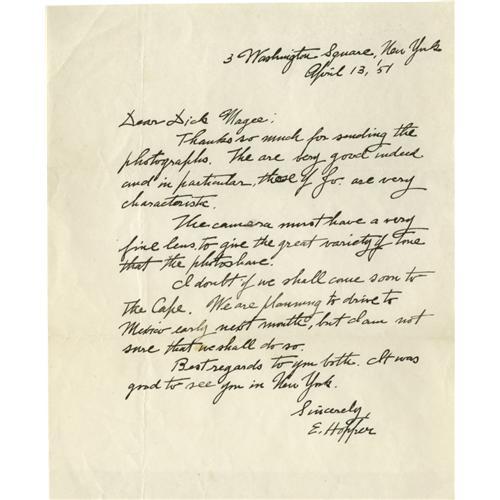 3 Washington Square, New York
April 13, '51
Dear Dick Magee:
Thanks so much for sending the
photographs. The are very good indeed
and in particular, those of Jo. are very
characteristic.
The camera must have a very
fine lens, to give the great variety of tone
that the photos have.
I doubt if we shall come soon to
the Cape. We are planning to drive to
Mexico early next month, but I am not
sure that we shall do so.
Best regards to you both. It was
good to see you in New York.
Sincerely,
E. Hopper